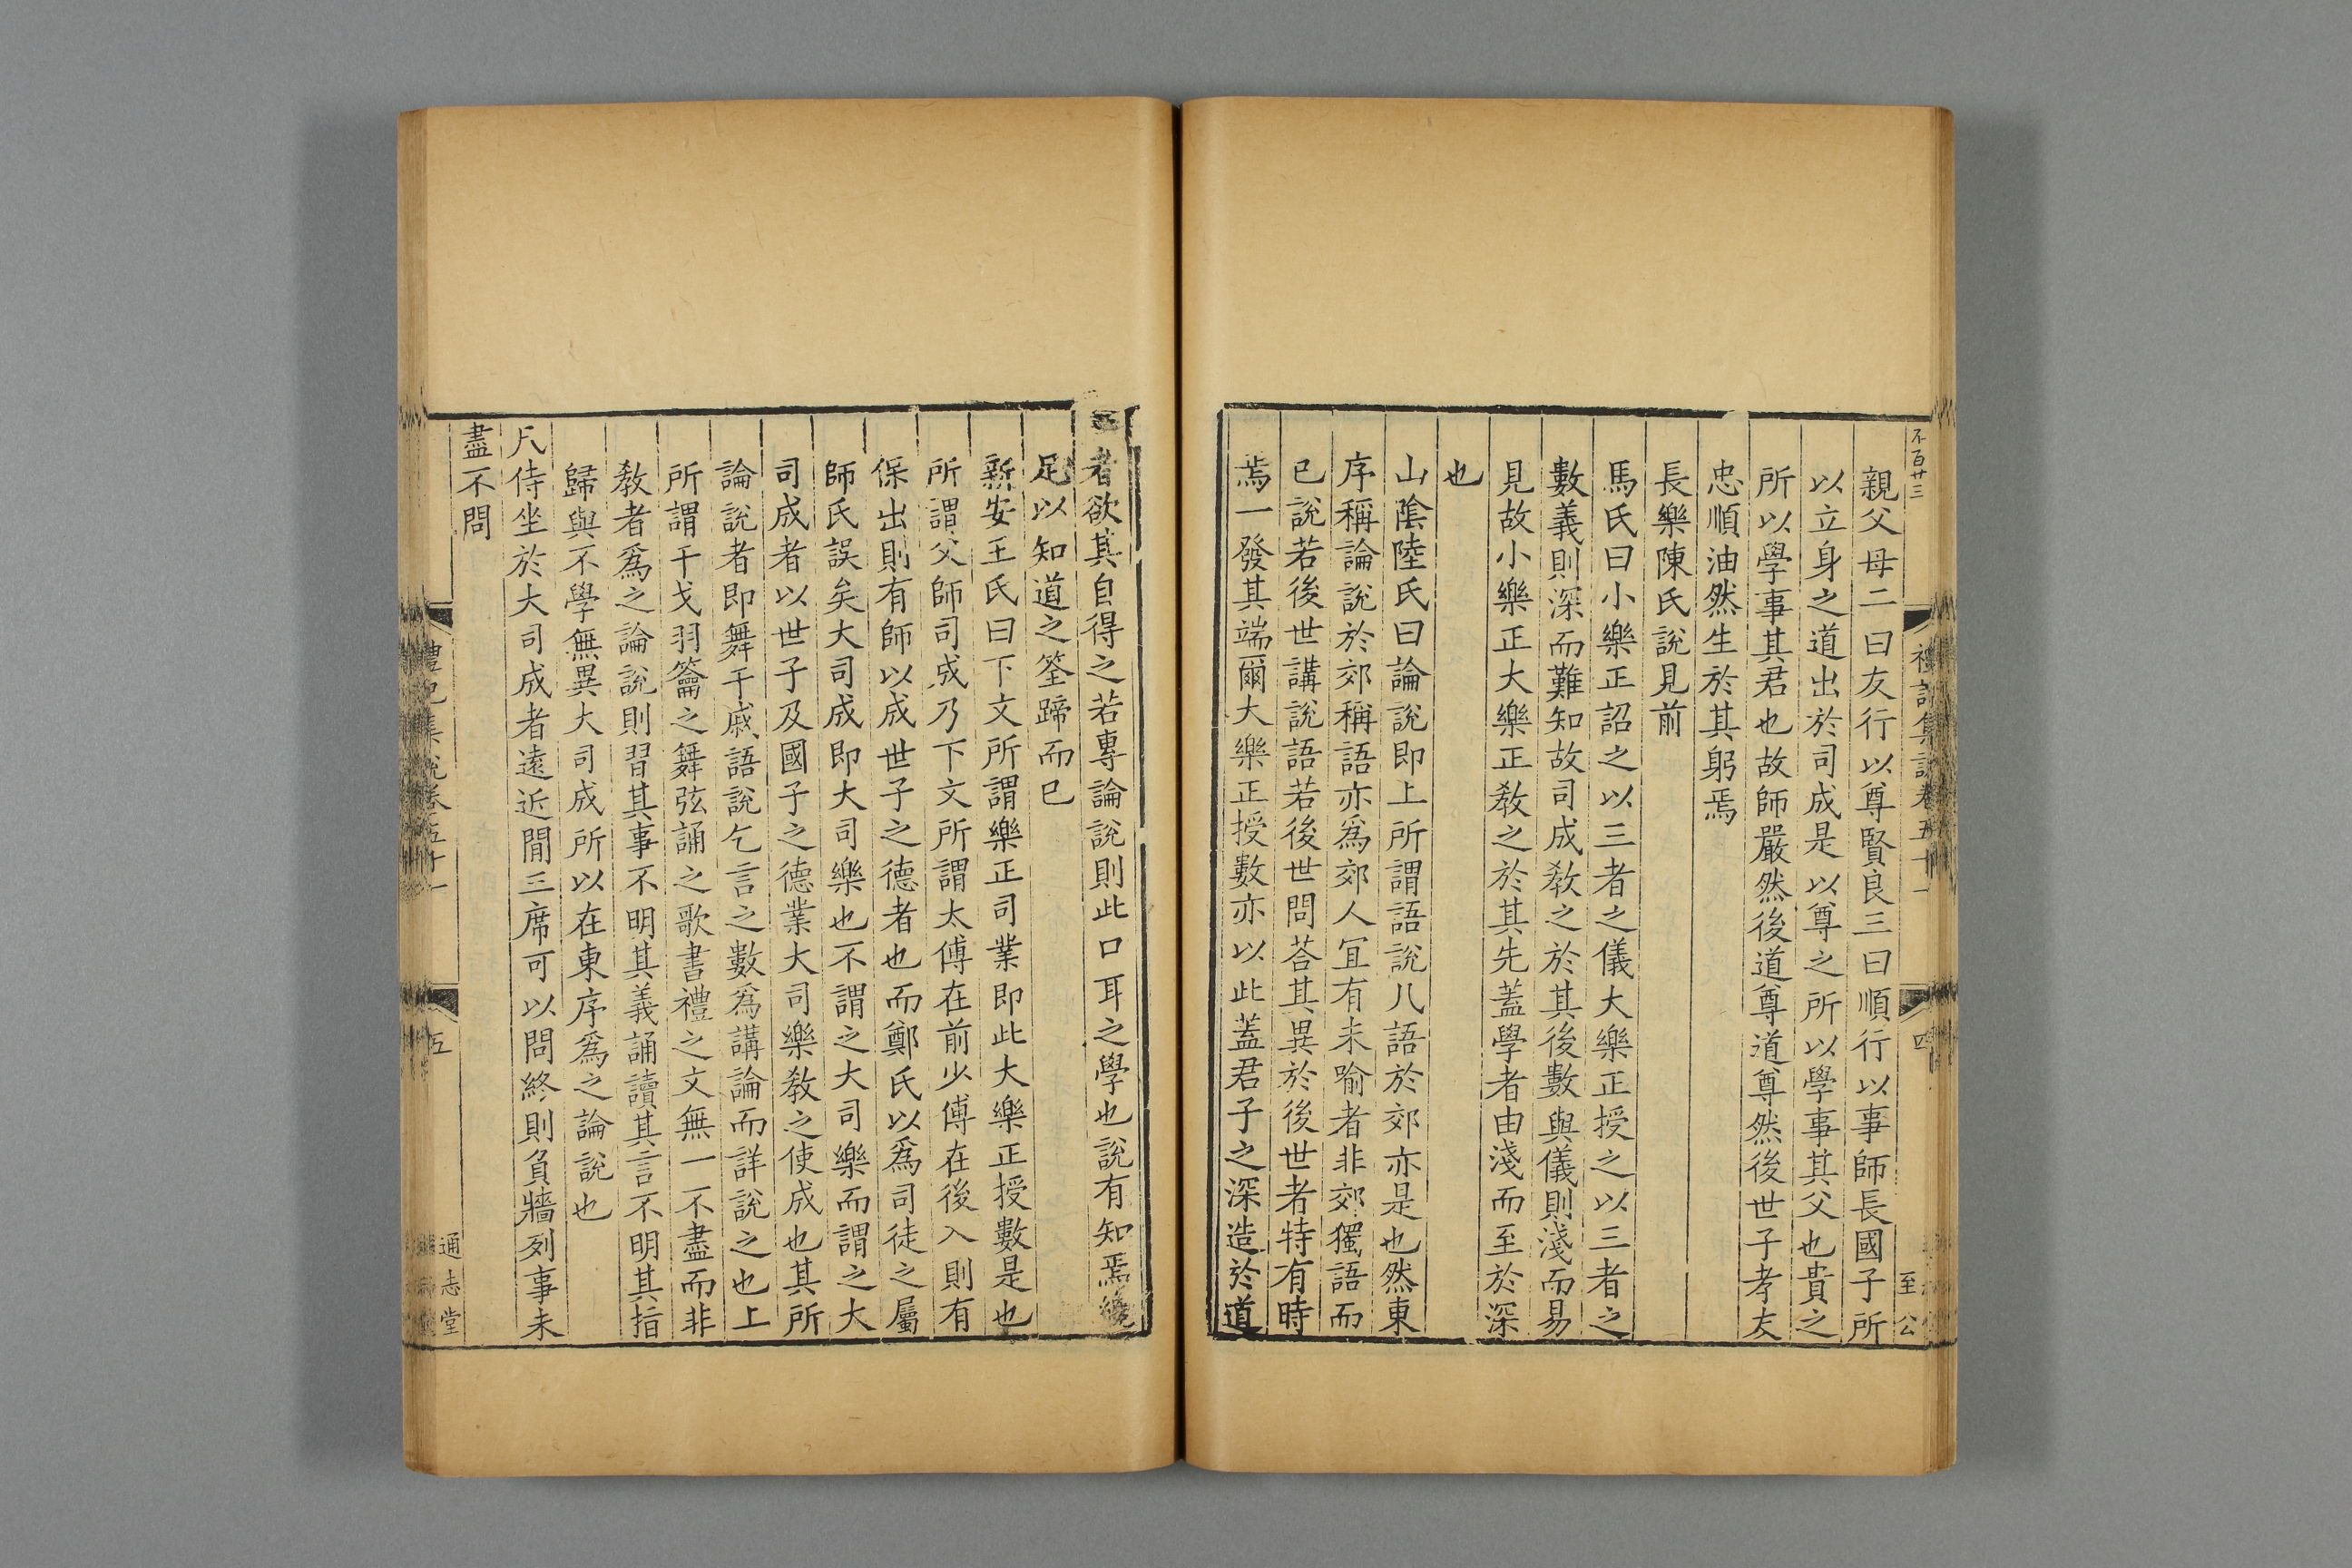 不百廿三
親父母二曰友行以尊賢良三曰順行以事師長國子所
以立身之道出於司成是以尊之所以學事其父也貴之
所以學事其君也故師嚴然後道尊道尊然後世子孝友
忠順油然生於其躬焉
長樂陳氏說見前
馬氏曰小樂正詔之以三者之儀大樂正授之以三者之
數義則深而難知故司成敎之於其後數與儀則淺而易
見故小樂正大樂正敎之於其先蓋學者由淺而至於深
也
山隂陸氏曰論說即上所謂語說凡語於郊亦是也然東
序稱論說於郊稱語亦爲郊人宜有未喻者非郊獨語而
已說若後世講說語若後世問荅其異於後世者特有時
焉一發其端爾大樂正授數亦以此蓋君子之深造於道
禮記集說卷五十一
四
至公
者欲其自得之若專論說則此口耳之學也說有知焉纔
足以知道之筌蹄而已
新安王氏曰下文所謂樂正司業即此大樂正授數是也
所謂父師司成乃下文所謂太傅在前少傅在後入則有
保出則有師以成世子之德者也而鄭氏以爲司徒之屬
師氏誤矣大司成即大司樂也不謂之大司樂而謂之大
司成者以世子及國子之德業大司樂敎之使成也其所
論說者即舞干戚語說乞言之數爲講論而詳說之也上
所謂干戈羽籥之舞弦誦之歌書禮之文無一不盡而非
敎者爲之論說則習其事不明其義誦讀其言不明其指
歸與不學無異大司成所以在東序爲之論說也
凡侍坐於大司成者遠近間三席可以問終則負牆列事未
盡不問
禮記集說卷五十一
五
通志堂